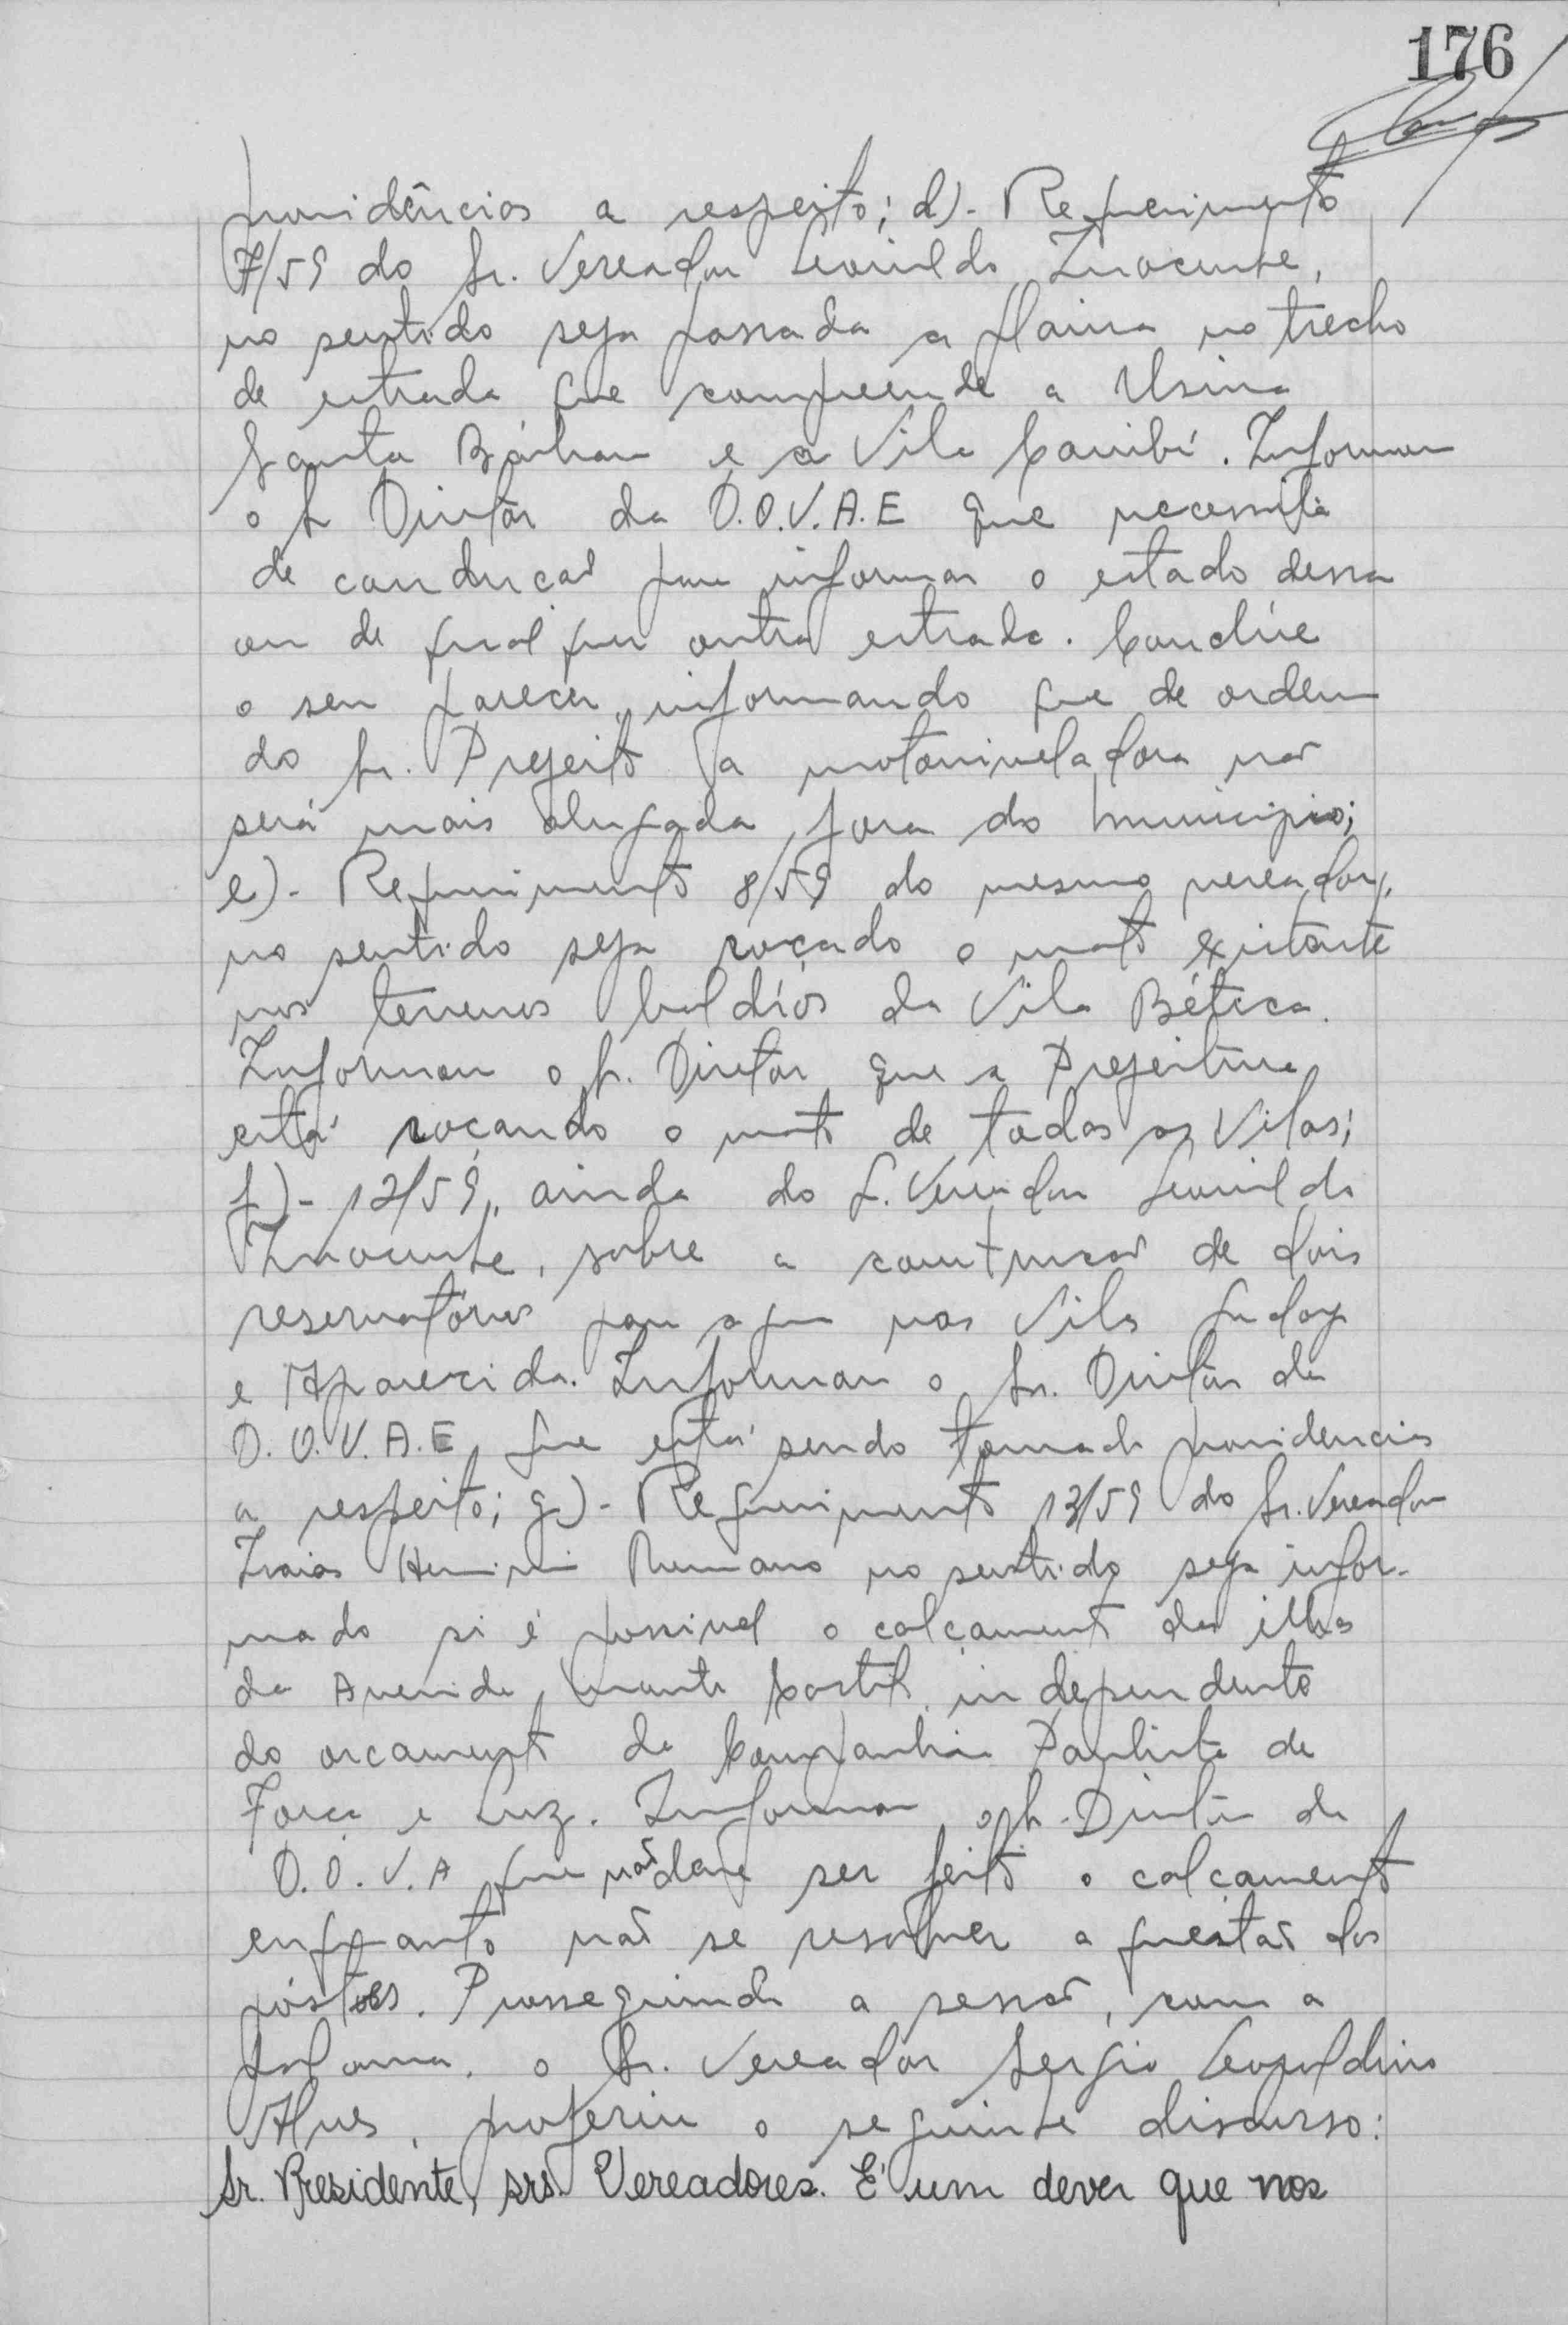 176
providências a respeito; d)- Requerimento
7/59 do Sr. Vereador Leonildo Inocente,
no sentido seja passada a plaina no trecho
de estrada que compreende a Usina
Santa Bárbara e a Vila Caribi. Informou
o Sr Diretor da D.O.V.A.E que necessita
de conducão para informar o estado dessa
ou de qualquer outra estrada. Conclúe
o seu parecer, informando que de ordem
do Sr. Prefeito a motoniveladora não
será mais alugada fora do município;
e)- Requerimento 8/59 do mesmo vereador,
no sentido seja roçado o mato existente
nos terrenos baldíos da Vila Bética.
Informou o Sr. Diretor que a Prefeitura
está roçando o mato de todas as Vilas;
f)- 12/59, ainda do Sr. Vereador Leonildo
Inocente, sobre a construcão de dois
reservatórios para agua nas Vilas Godoy
e Aparecida. Informou o Sr. Diretor da
D.O.V.A.E que está sendo tomada providencias
a respeito; g)- Requerimento 13/59 do Sr. Vereador
Isaias Romano no sentido seja infor-
mado si é possivel o calçamento das ilhas
da Avenida Monte Castelo, independente
do orcamento da Companhia Paulista de
Força e Luz. Informou o Sr. Diretor da
D.O.V.A que não deve ser feito o calçamento
enquanto não se resolver a questão dos
póstes. Prosseguindo a sessão, com a
palavra, o Sr. Vereador Sergio Leopoldino
Alves, proferiu o seguinte discurso:
Sr. Presidente, srs. Vereadores. É um dever que nos